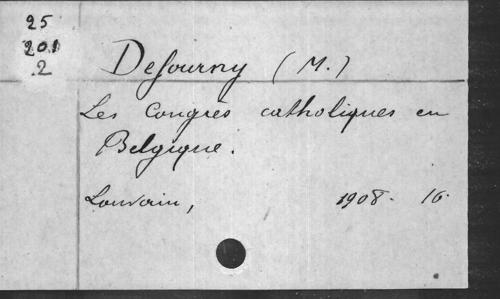 25
201
.2
Defourny (M.)
Les Congrès catholiques en
Belgique.
Louvain, 1908. 16.